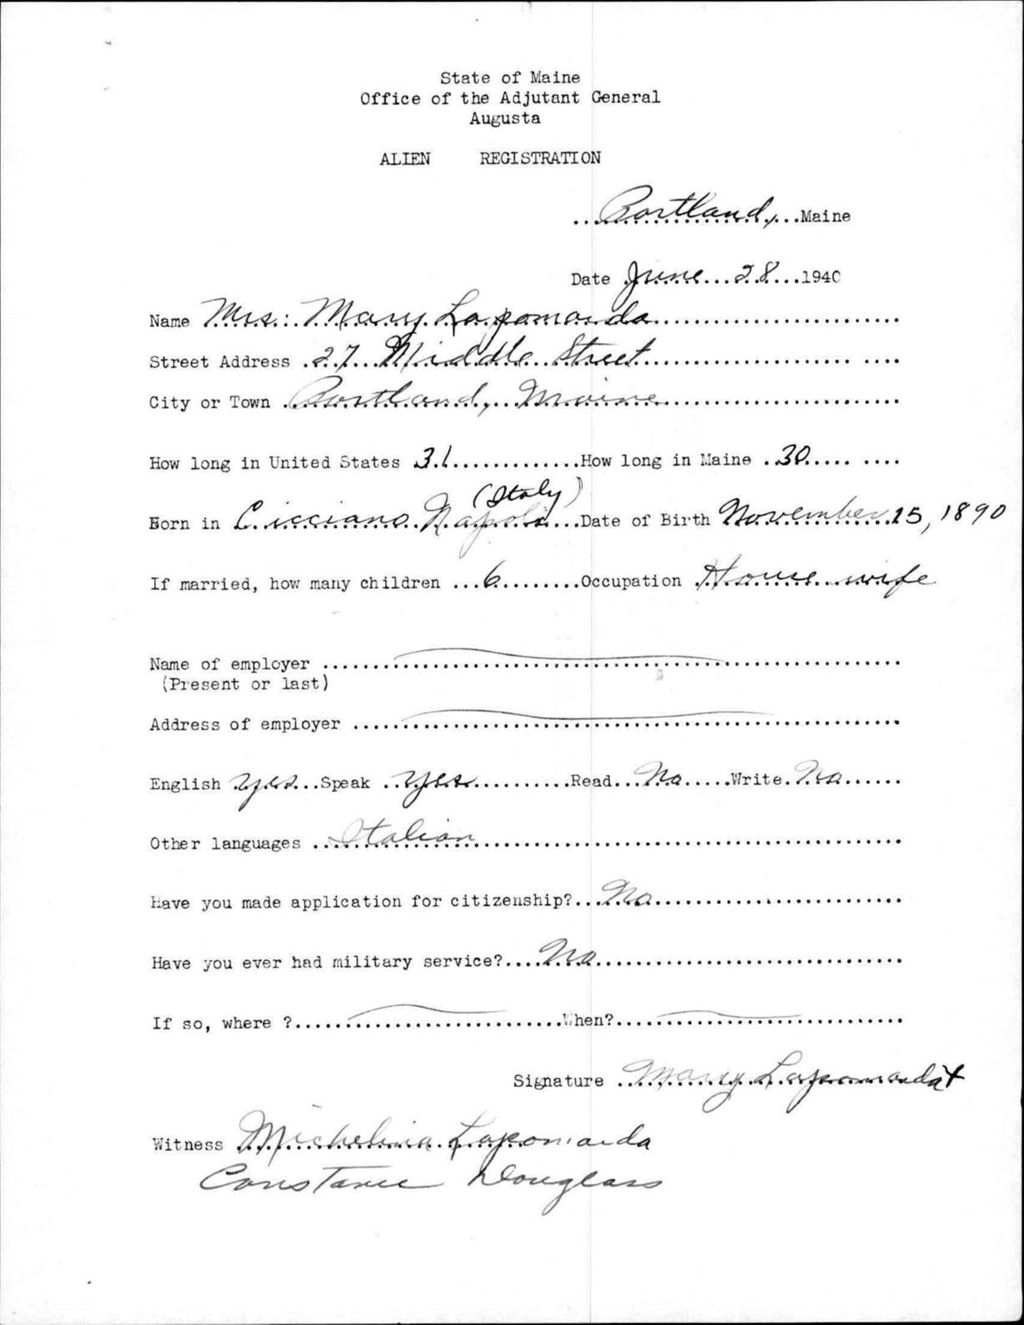 State of Maine
Office of the Adjutant General
Augusta
ALIEN REGISTRATION
Portland, Maine
Date June 28 1940
Name Mrs. Mary Lapomarda
Street Address 27 Middle Street
City or Town Portland, Maine
How long in United States 31 How long in Maine 30
(Italy)
Born in Cicciano Napoli Date of Birth November 15, 1890
If married, how many children 6 Occupation House wife
Name of employer
(Present or last)
Address of employer
English yes Speak yes Read No Write No
Other languages Italian
Have you made application for citizenship? No
Have you ever had military service? No
If so, where ? When?
Signature Mary Lapomarda X
Witness Michelina Lapomarda
Constance Douglass